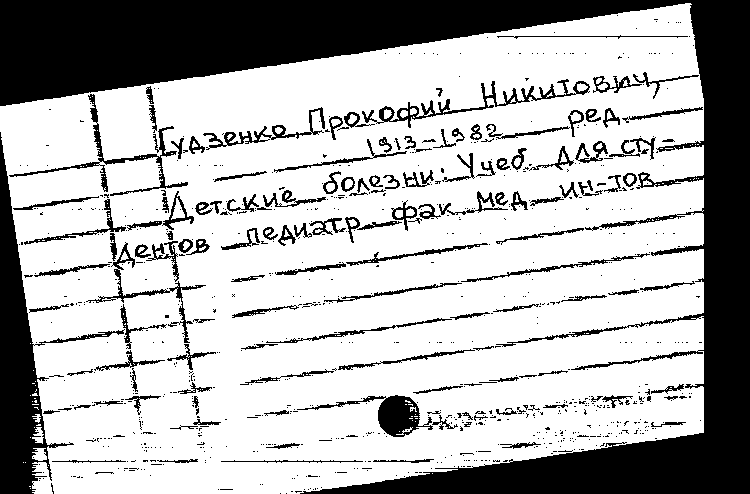 Гудзенко, Прокофий Никитович,
1913-1982 ред.
Детские болезни: Учеб. для сту-
дентов педиатр. фак. мед. ин-тов